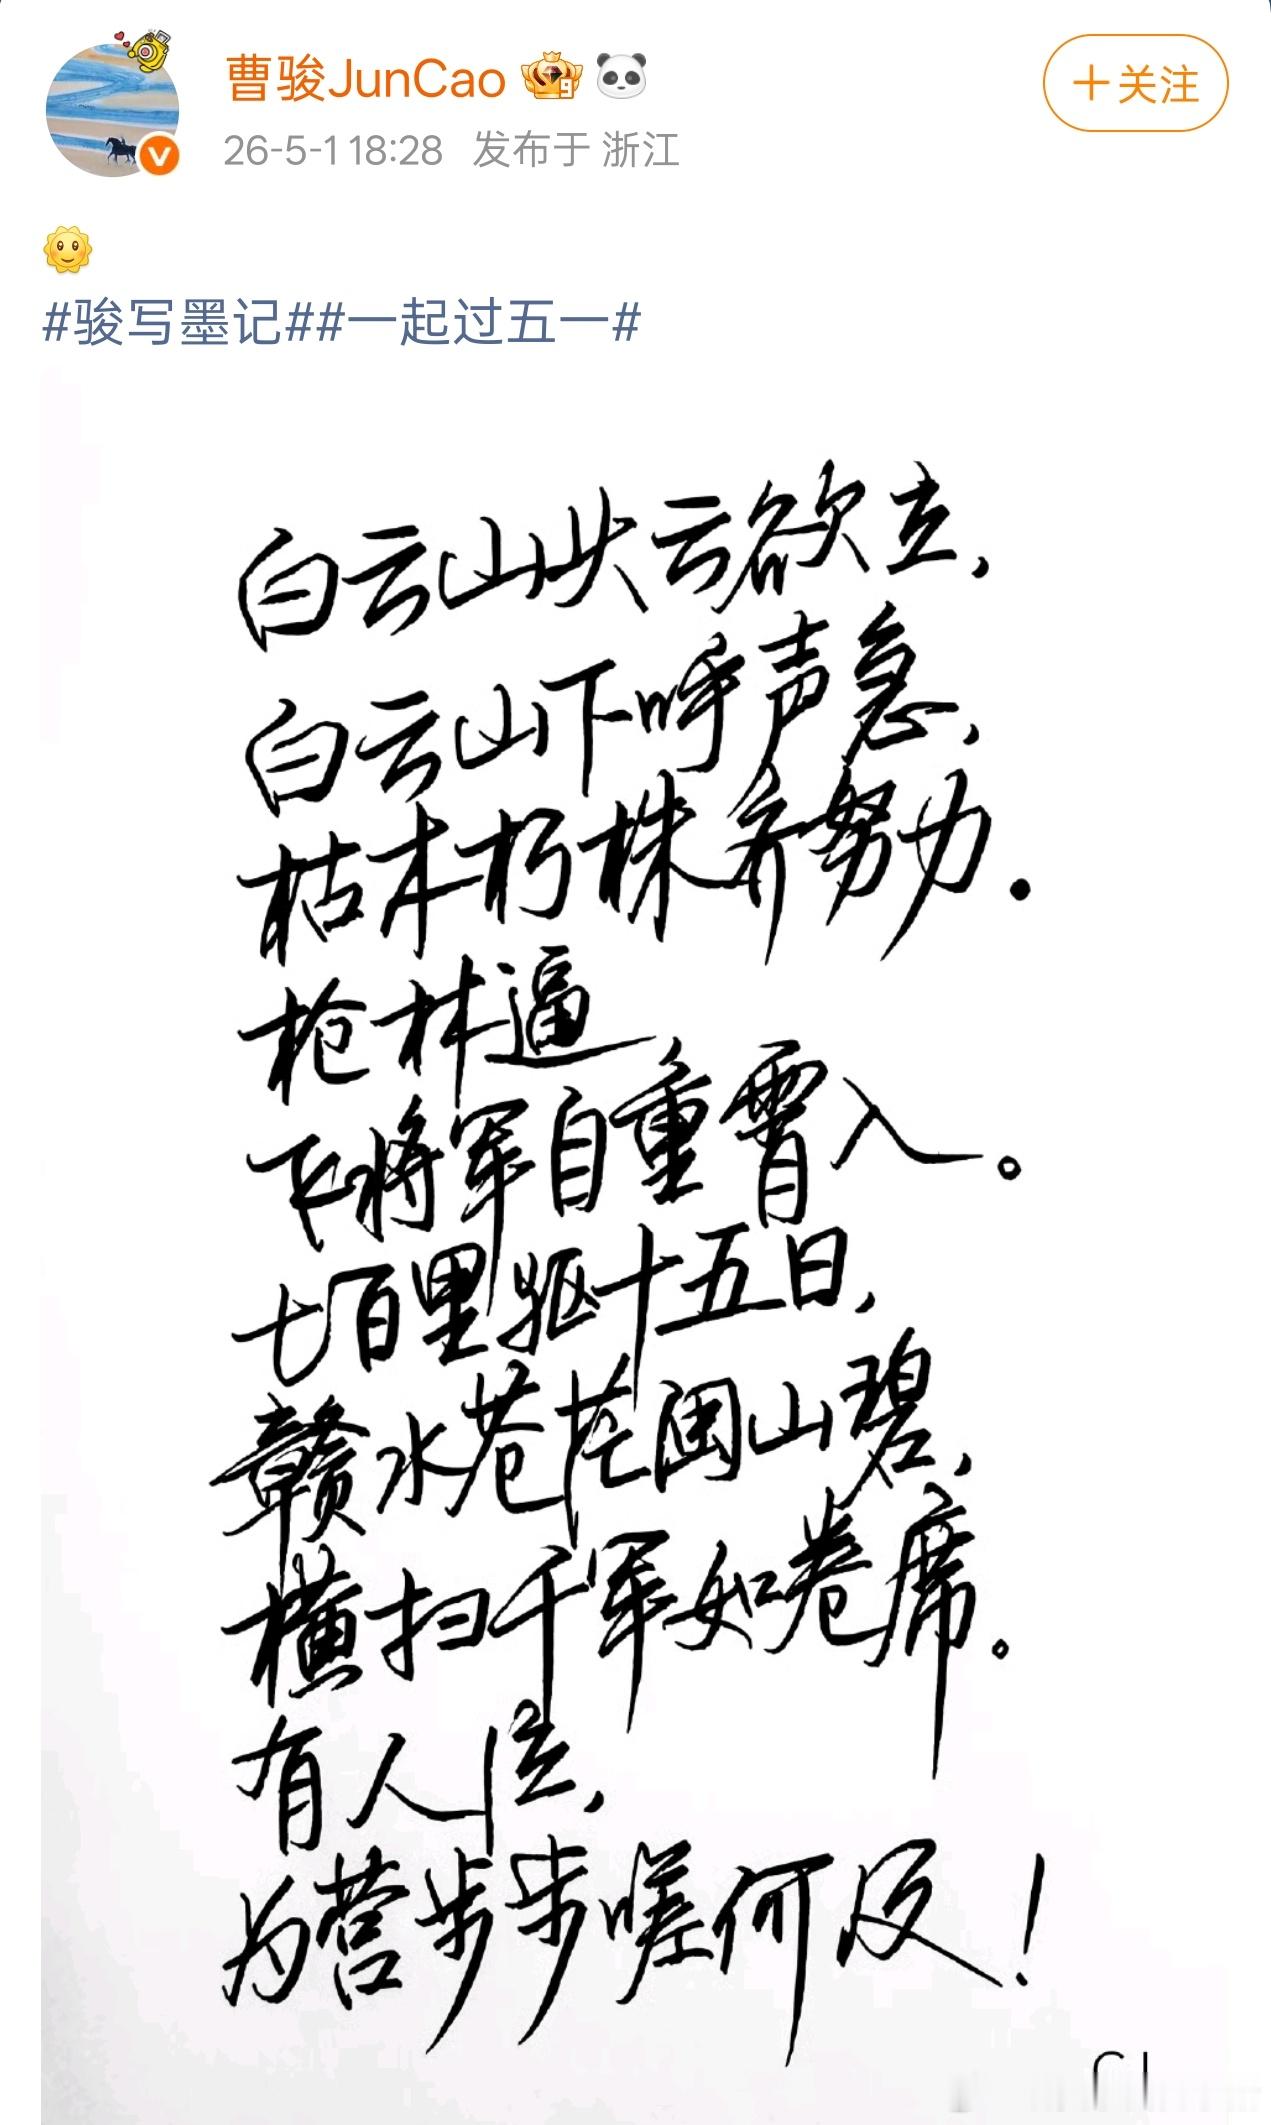 曹骏JunCao
+关注
26-5-1 18:28 发布于 浙江
#骏写墨记##一起过五一#
白云山头云欲立,
白云山下呼声急,
枯木朽株齐努力.
枪林逼
飞将军自重霄入。
七百里驱十五日,
赣水苍茫闽山碧,
横扫千军如卷席。
有人泣,
为营步步嗟何及!